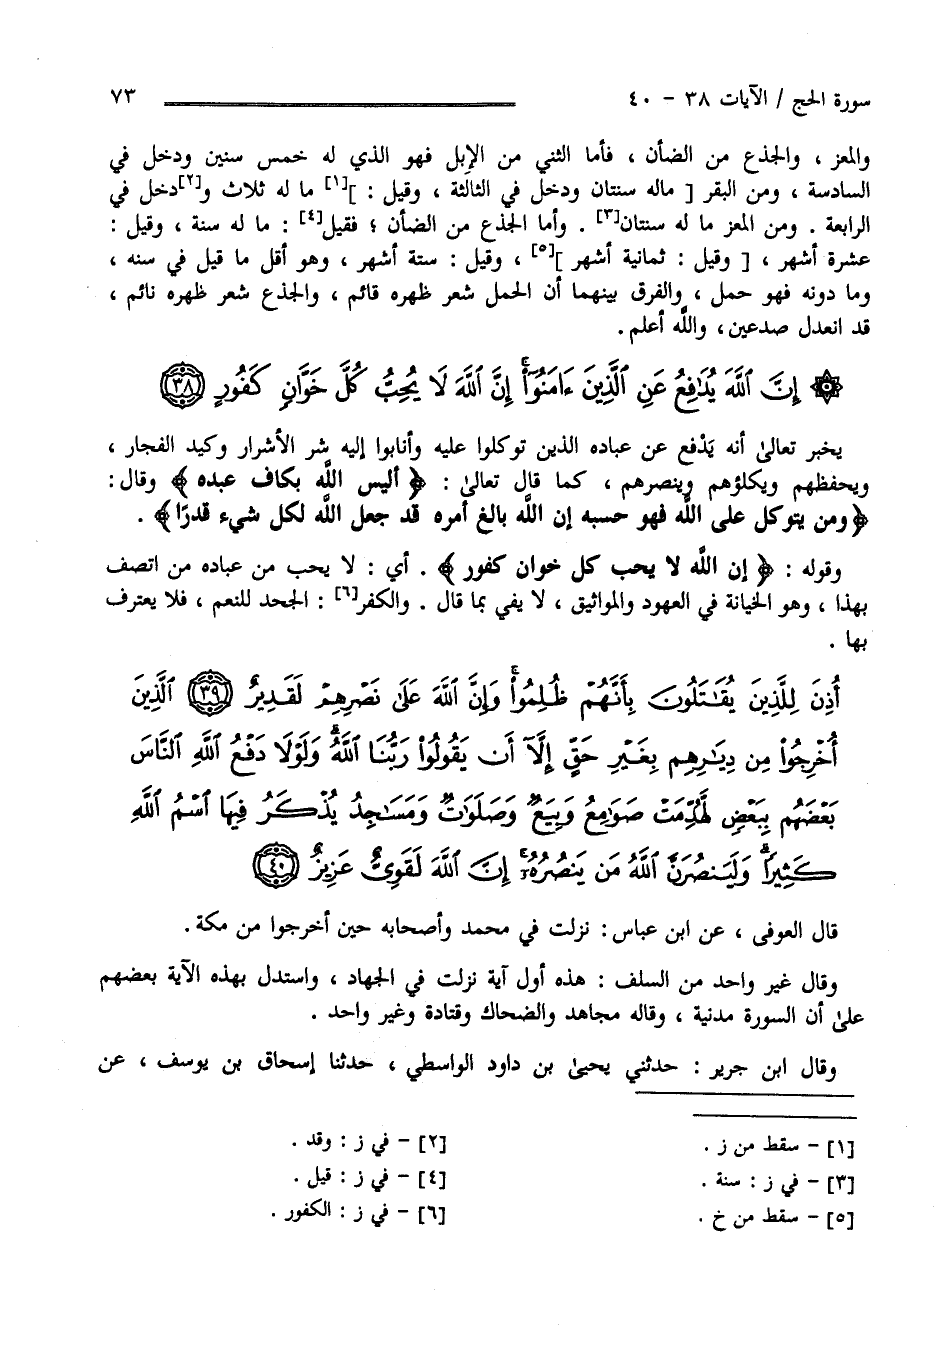 سورة الحج / الآيات ٣٨ - ٤٠ ٧٣
والمعز ، والجذع من الضأن ، فأما الثني من الإبل فهو الذي له خمس سنين ودخل في
السادسة ، ومن البقر [ ماله سنتان ودخل في الثالثة ، وقيل : ][١] ما له ثلاث و[٢]دخل في
الرابعة . ومن المعز ما له سنتان[٣] . وأما الجذع من الضأن ؛ فقيل[٤] : ما له سنة ، وقيل :
عشرة أشهر ، [ وقيل : ثمانية أشهر ][٥] ، وقيل : ستة أشهر ، وهو أقل ما قيل في سنه ،
وما دونه فهو حمل ، والفرق بينهما أن الحمل شعر ظهره قائم ، والجذع شعر ظهره نائم ،
قد انعدل صدعين، واللَّه أعلم.
۞ إِنَّ ٱللَّهَ يُدَٰفِعُ عَنِ ٱلَّذِينَ ءَامَنُوٓا۟ ۗ إِنَّ ٱللَّهَ لَا يُحِبُّ كُلَّ خَوَّانٍ كَفُورٍ ﴿٣٨﴾
يخبر تعالىٰ أنه يَدْفع عن عباده الذين توكلوا عليه وأنابوا إليه شر الأشرار وكيد الفجار ،
ويحفظهم ويكلؤهم وينصرهم ، كما قال تعالىٰ : ﴿ أليس اللَّه بكاف عبده ﴾ وقال :
﴿ومن يتوكل على اللَّه فهو حسبه إن اللَّه بالغ أمره قد جعل اللَّه لكل شيء قدرًا﴾ .
وقوله : ﴿ إن اللَّه لا يحب كل خوان كفور ﴾ . أي : لا يحب من عباده من اتصف
بهذا ، وهو الخيانة في العهود والمواثيق ، لا يفي بما قال . والكفر[٦] : الجحد للنعم ، فلا يعترف
بها .
أُذِنَ لِلَّذِينَ يُقَٰتَلُونَ بِأَنَّهُمْ ظُلِمُوا۟ ۚ وَإِنَّ ٱللَّهَ عَلَىٰ نَصْرِهِمْ لَقَدِيرٌ ﴿٣٩﴾ ٱلَّذِينَ
أُخْرِجُوا۟ مِن دِيَٰرِهِم بِغَيْرِ حَقٍّ إِلَّآ أَن يَقُولُوا۟ رَبُّنَا ٱللَّهُ ۗ وَلَوْلَا دَفْعُ ٱللَّهِ ٱلنَّاسَ
بَعْضَهُم بِبَعْضٍ لَّهُدِّمَتْ صَوَٰمِعُ وَبِيَعٌ وَصَلَوَٰتٌ وَمَسَٰجِدُ يُذْكَرُ فِيهَا ٱسْمُ ٱللَّهِ
كَثِيرًا ۗ وَلَيَنصُرَنَّ ٱللَّهُ مَن يَنصُرُهُۥٓ ۗ إِنَّ ٱللَّهَ لَقَوِىٌّ عَزِيزٌ ﴿٤٠﴾
قال العوفى ، عن ابن عباس: نزلت في محمد وأصحابه حين أخرجوا من مكة.
وقال غير واحد من السلف : هذه أول آية نزلت في الجهاد ، واستدل بهذه الآية بعضهم
علىٰ أن السورة مدنية ، وقاله مجاهد والضحاك وقتادة وغير واحد .
وقال ابن جرير : حدثني يحيىٰ بن داود الواسطي ، حدثنا إسحاق بن يوسف ، عن
[١] - سقط من ز . [٢] - في ز : وقد .
[٣] - في ز : سنة . [٤] - في ز : قيل .
[٥] - سقط من خ . [٦] - في ز : الكفور .